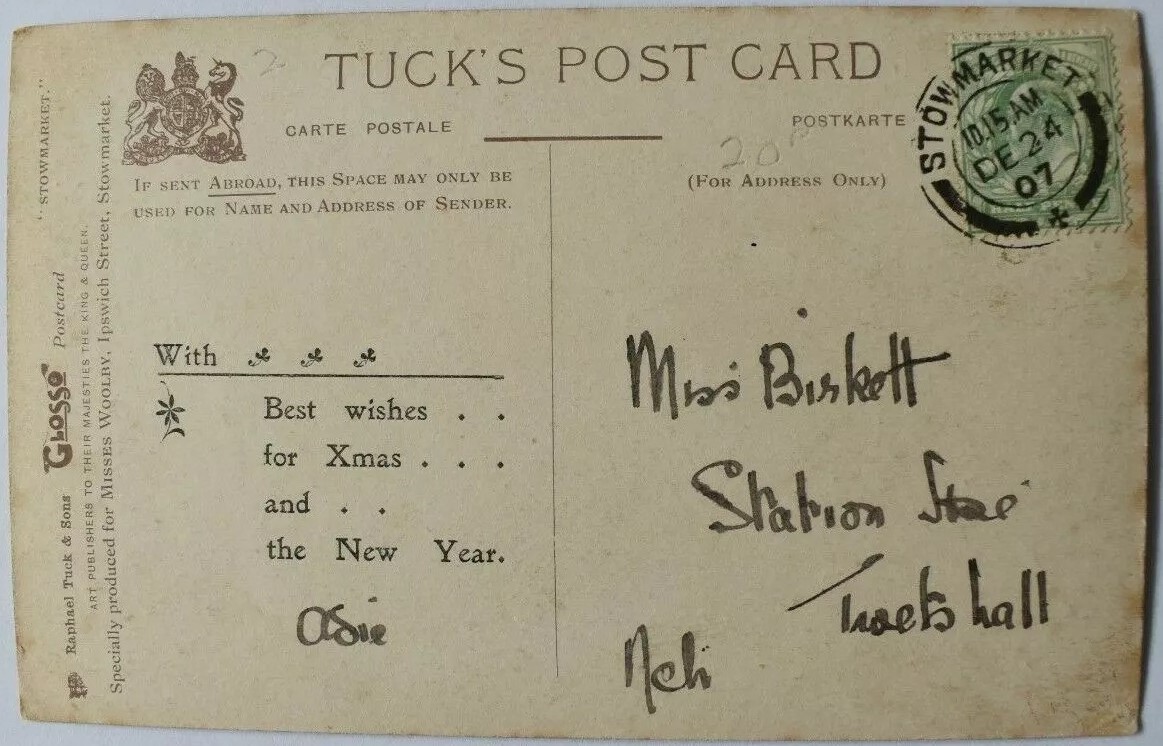 TUCK'S POST CARD
CARTE POSTALE
POSTKARTE
IF SENT ABROAD, THIS SPACE MAY ONLY BE
USED FOR NAME AND ADDRESS OF SENDER.
(FOR ADDRESS ONLY)
STOWMARKET
10.15 AM
DE 24
07
"STOWMARKET."
Raphael Tuck & Sons "GLOSSO" Postcard
ART PUBLISHERS TO THEIR MAJESTIES THE KING & QUEEN.
Specially produced for MISSES WOOLBY, Ipswich Street, Stowmarket.
With
Best wishes . .
for Xmas . . .
and . .
the New Year.
Miss Birkett
Station